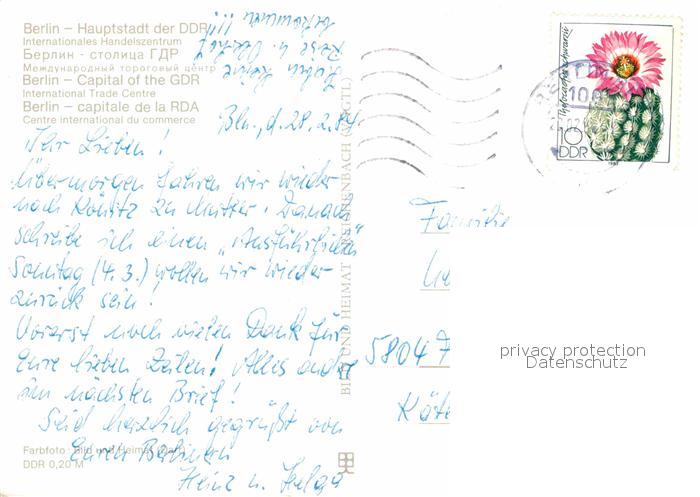 Berlin – Hauptstadt der DDR
Internationales Handelszentrum
Берлин - столица ГДР
Международный торговый центр
Berlin – Capital of the GDR
International Trade Centre
Berlin – capitale de la RDA
Centre international du commerce
bekommen !!!
Reise n. Oberhof
Haben keine
Bln., d. 28.2.84
Ihr Lieben!
Übermorgen fahren wir wieder
nach Könitz zu Mutter. Danach
schreibe ich einen „Ausführlichen"
Sonntag (4.3.) wollen wir wieder
zurück sein!
Vorerst noch vielen Dank für
Eure lieben Zeilen! Alles andre
im nächsten Brief!
Seid herzlich gegrüßt von
Euren Berlinern
Heinz u. Helga
Farbfoto: Bild und Heimat
DDR 0,20 M
BILD UND HEIMAT REICHENBACH (VOGTL)
BERLIN
100
10
DDR
Familie
5804 F
Käte
privacy protection
Datenschutz